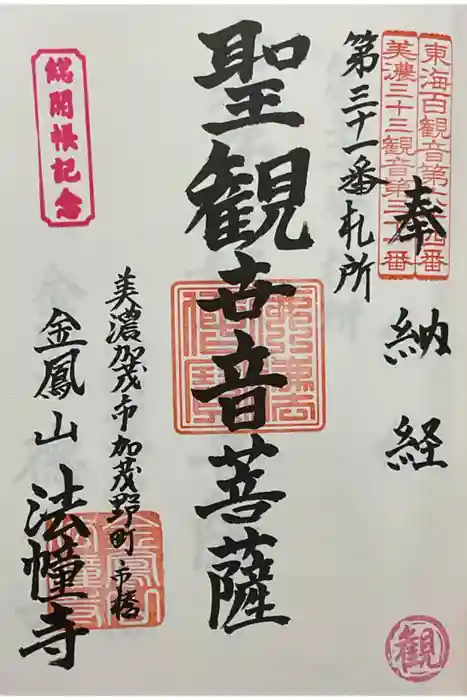 東海百観音第六十四番
美濃三十三観音第三十一番
奉納経
第三十一番札所
聖観世音菩薩
美濃加茂市加茂野町市橋
金鳳山 法幢寺
総開帳記念
観